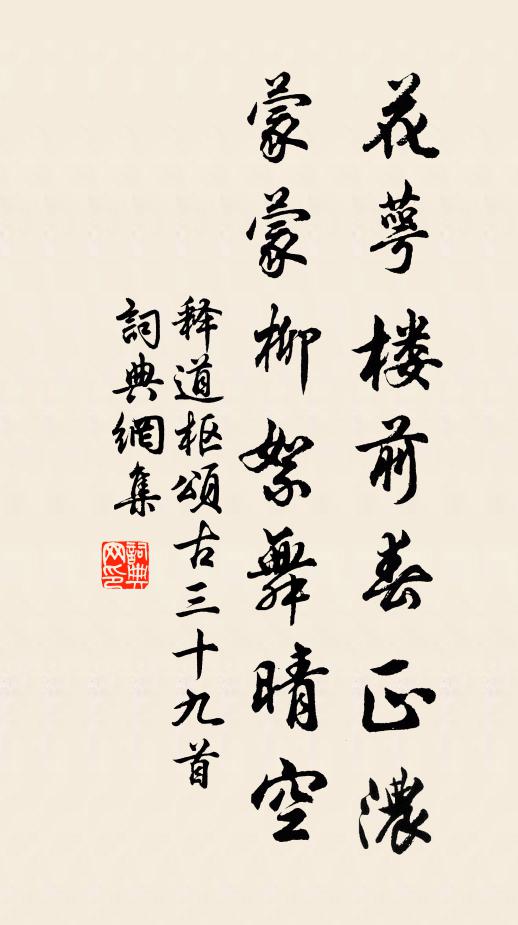 花萼楼前春正濃
蒙蒙柳絮舞晴空
释道枢頌古三十九首
詞典網集
詞典网印